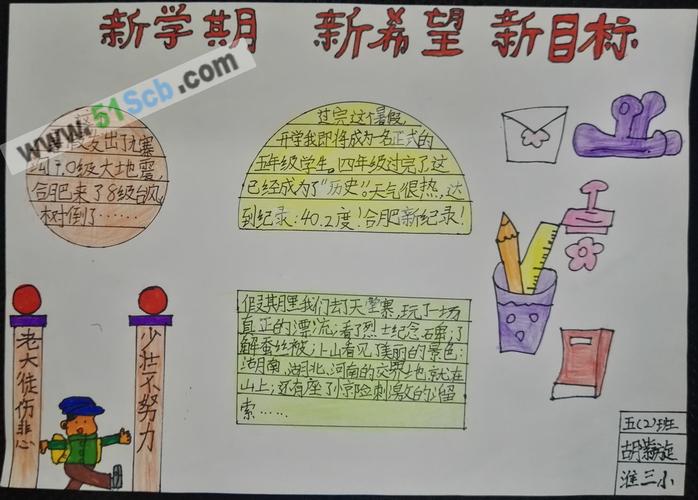 新学期 新希望 新目标
www.51Scb.com
假发出了九寨
沟7.0级大地震,
合肥来了8级台风,
树倒了……
过完这个暑假,
开学我即将成为一名正式的
五年级学生。四年级过完了这
已经成为了“历史”。天气很热,达
到纪录:40.2度!合肥新纪录!
假期里我们去了天堂寨,玩了一场
真正的漂流;看了烈士纪念石碑;了
解蚕丝被;上山看见了美丽的景色;
湖南、湖北、河南的交界地,就在
山上;还有座了小惊险刺激的溜
索……
少壮不努力
老大徒伤悲
五(2)班
胡
淮三小